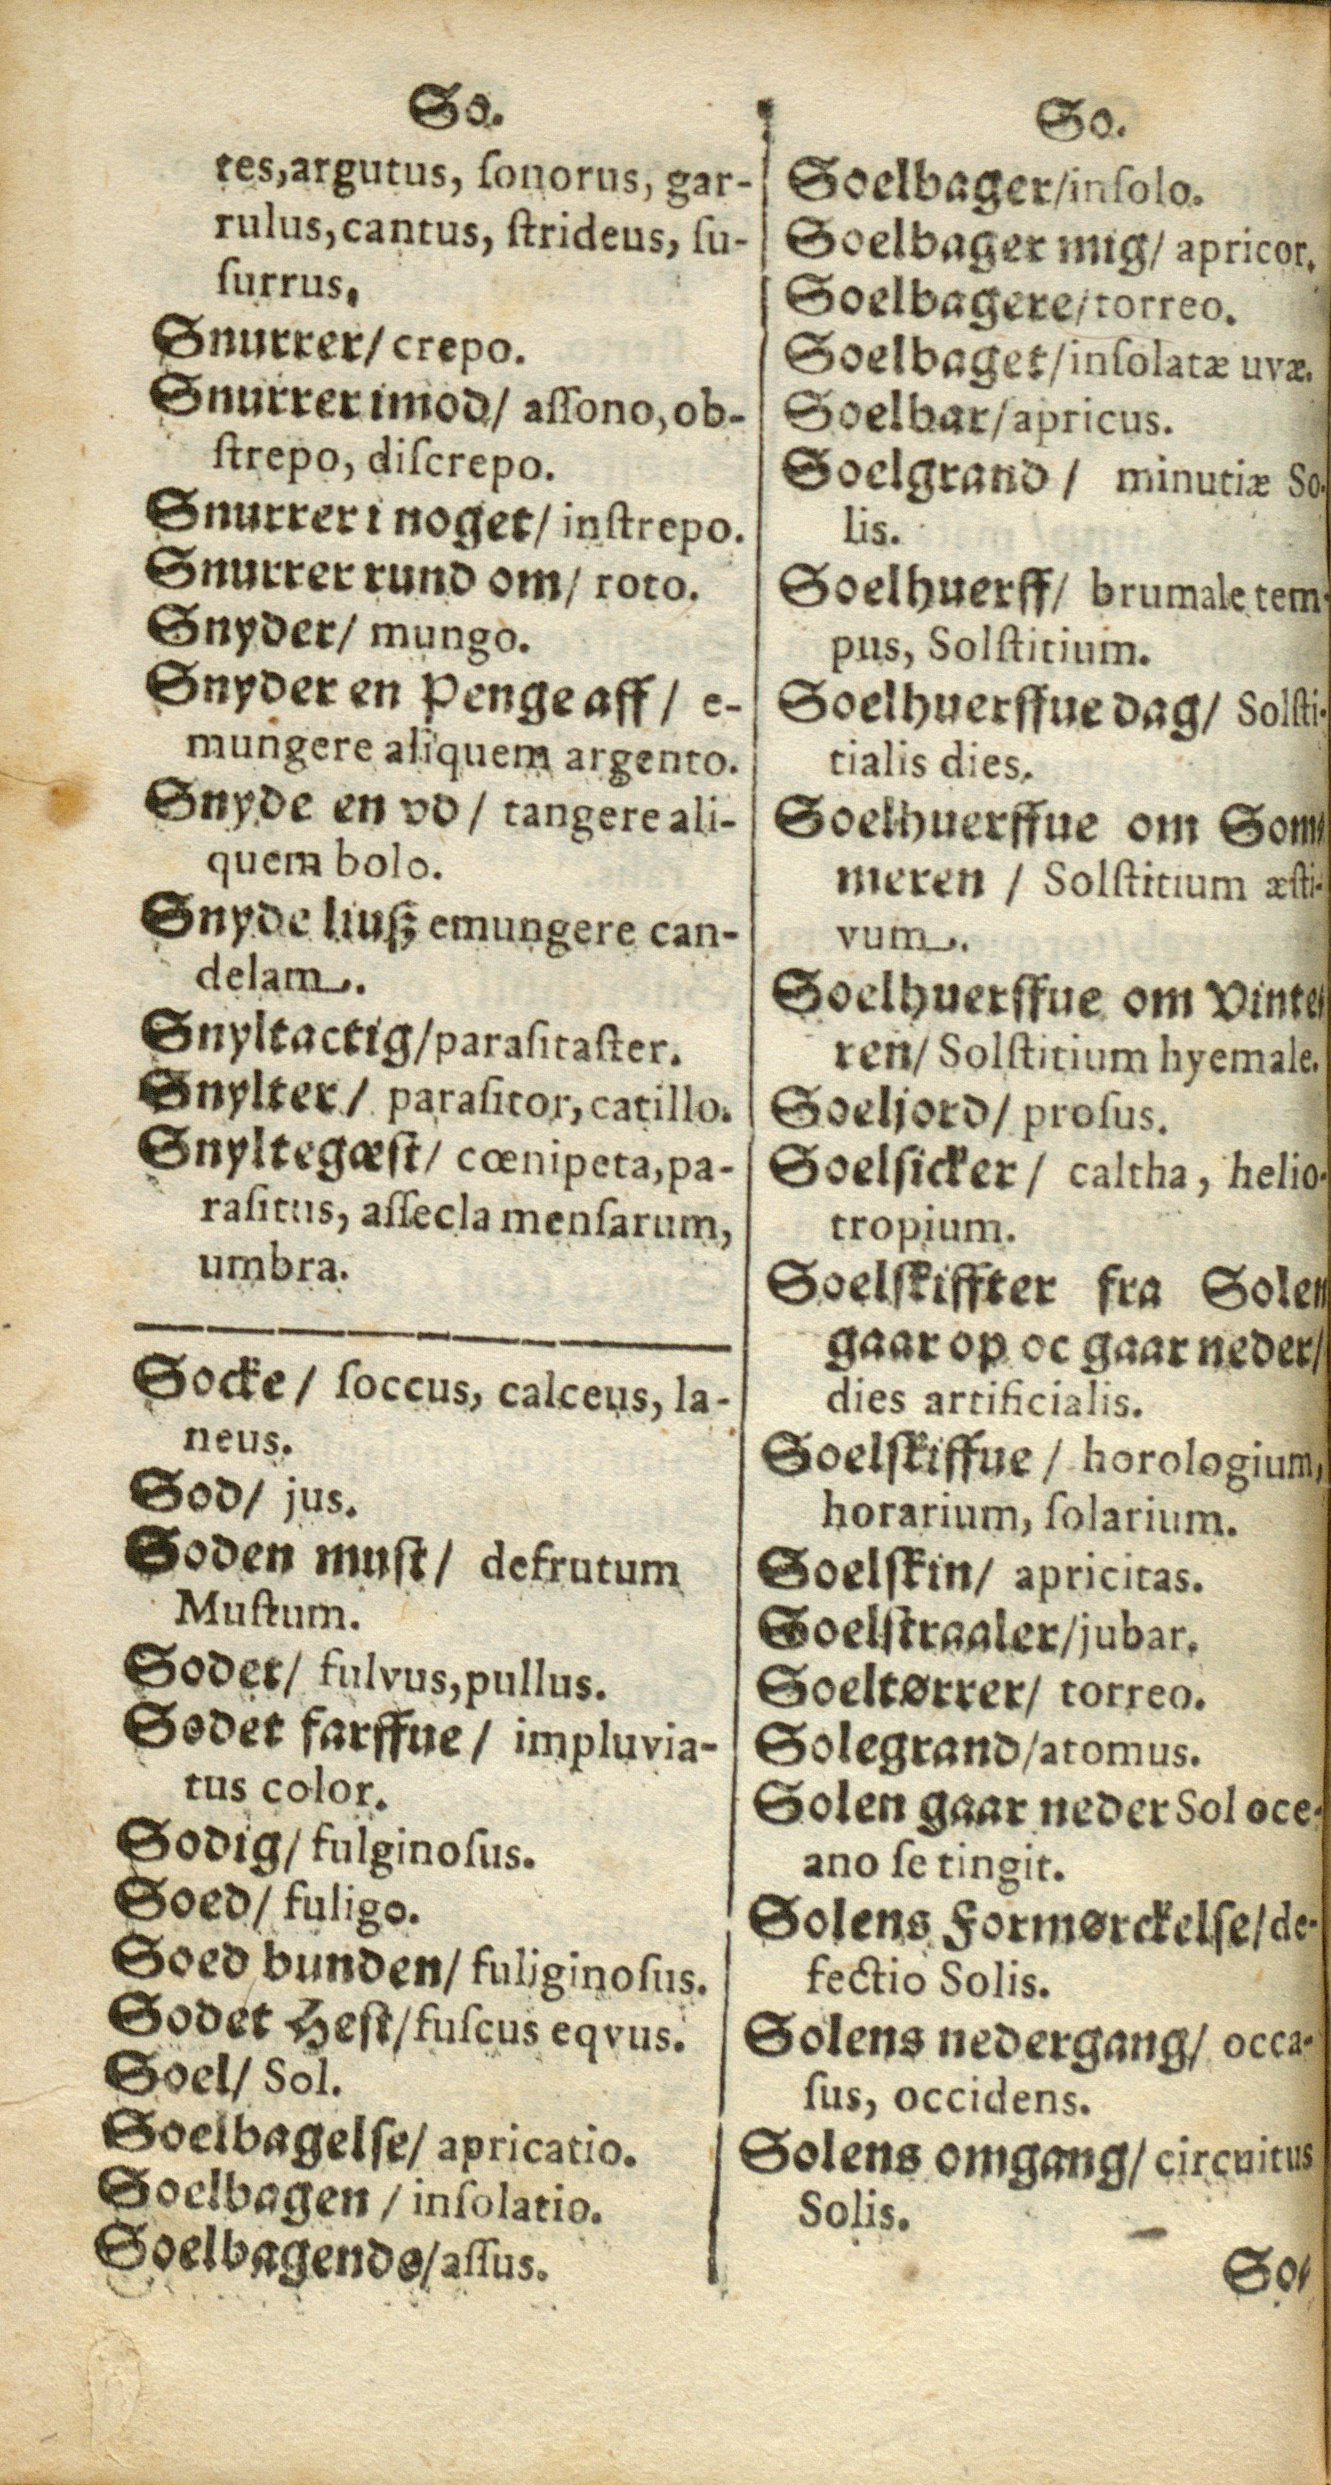 So.
tes,argutus, ſonorus, gar-
rulus,cantus, ſtrideus, ſu-
ſurrus,
Snurrer/ crepo.
Snurrer imod/ aſſono,ob-
ſtrepo, diſcrepo.
Snurrer i noget/ inſtrepo.
Snurrer rund om/ roto.
Snyder/ mungo.
Snyder en Penge aff / e-
mungere aliquem argento.
Snyde en vd / tangere ali-
quem bolo.
Snyde liuſz emungere can-
delam.
Snyltactig/paraſitaſter.
Snylter / paraſitor, catillo.
Snyltegæſt/ cœnipeta,pa-
raſitus, aſſecla menſarum,
umbra.
Socke / ſoccus, calceus, la-
neus.
Sod/ jus.
Soden muſt/ defrutum
Muſtum.
Sodet/ fulvus,pullus.
Sodet farffue / impluvia-
tus color.
Sodig/ fulginoſus.
Soed/ fuligo.
Soed bunden/ fuliginoſus.
Sodet Heſt/fuſcus eqvus.
Soel/ Sol.
Soelbagelſe/ apricatio.
Soelbagen / inſolatio.
Soelbagende/aſſus.
So.
Soelbager/inſolo.
Soelbager mig/ apricor.
Soelbagere/torreo.
Soelbaget/inſolatæ uvæ.
Soelbar/apricus.
Soelgrand / minutiæ So-
lis.
Soelhuerff/ brumale tem-
pus, Solſtitium.
Soelhuerffue dag/ Solſti-
tialis dies.
Soelhuerffue om Som-
meren / Solſtitium æſti-
vum.
Soelhuerffue om Vinte-
ren/ Solſtitium hyemale.
Soeljord/ proſus.
Soelſicker / caltha, helio-
tropium.
Soelſkiffter fra Solen
gaar op oc gaar neder/
dies artificialis.
Soelſkiffue / horologium,
horarium, ſolarium.
Soelſkin/ apricitas.
Soelſtraaler/jubar.
Soeltørrer/ torreo.
Solegrand/atomus.
Solen gaar neder Sol oce-
ano ſe tingit.
Solens Formørckelſe/de-
fectio Solis.
Solens nedergang/ occa-
ſus, occidens.
Solens omgang/ circuitus
Solis.